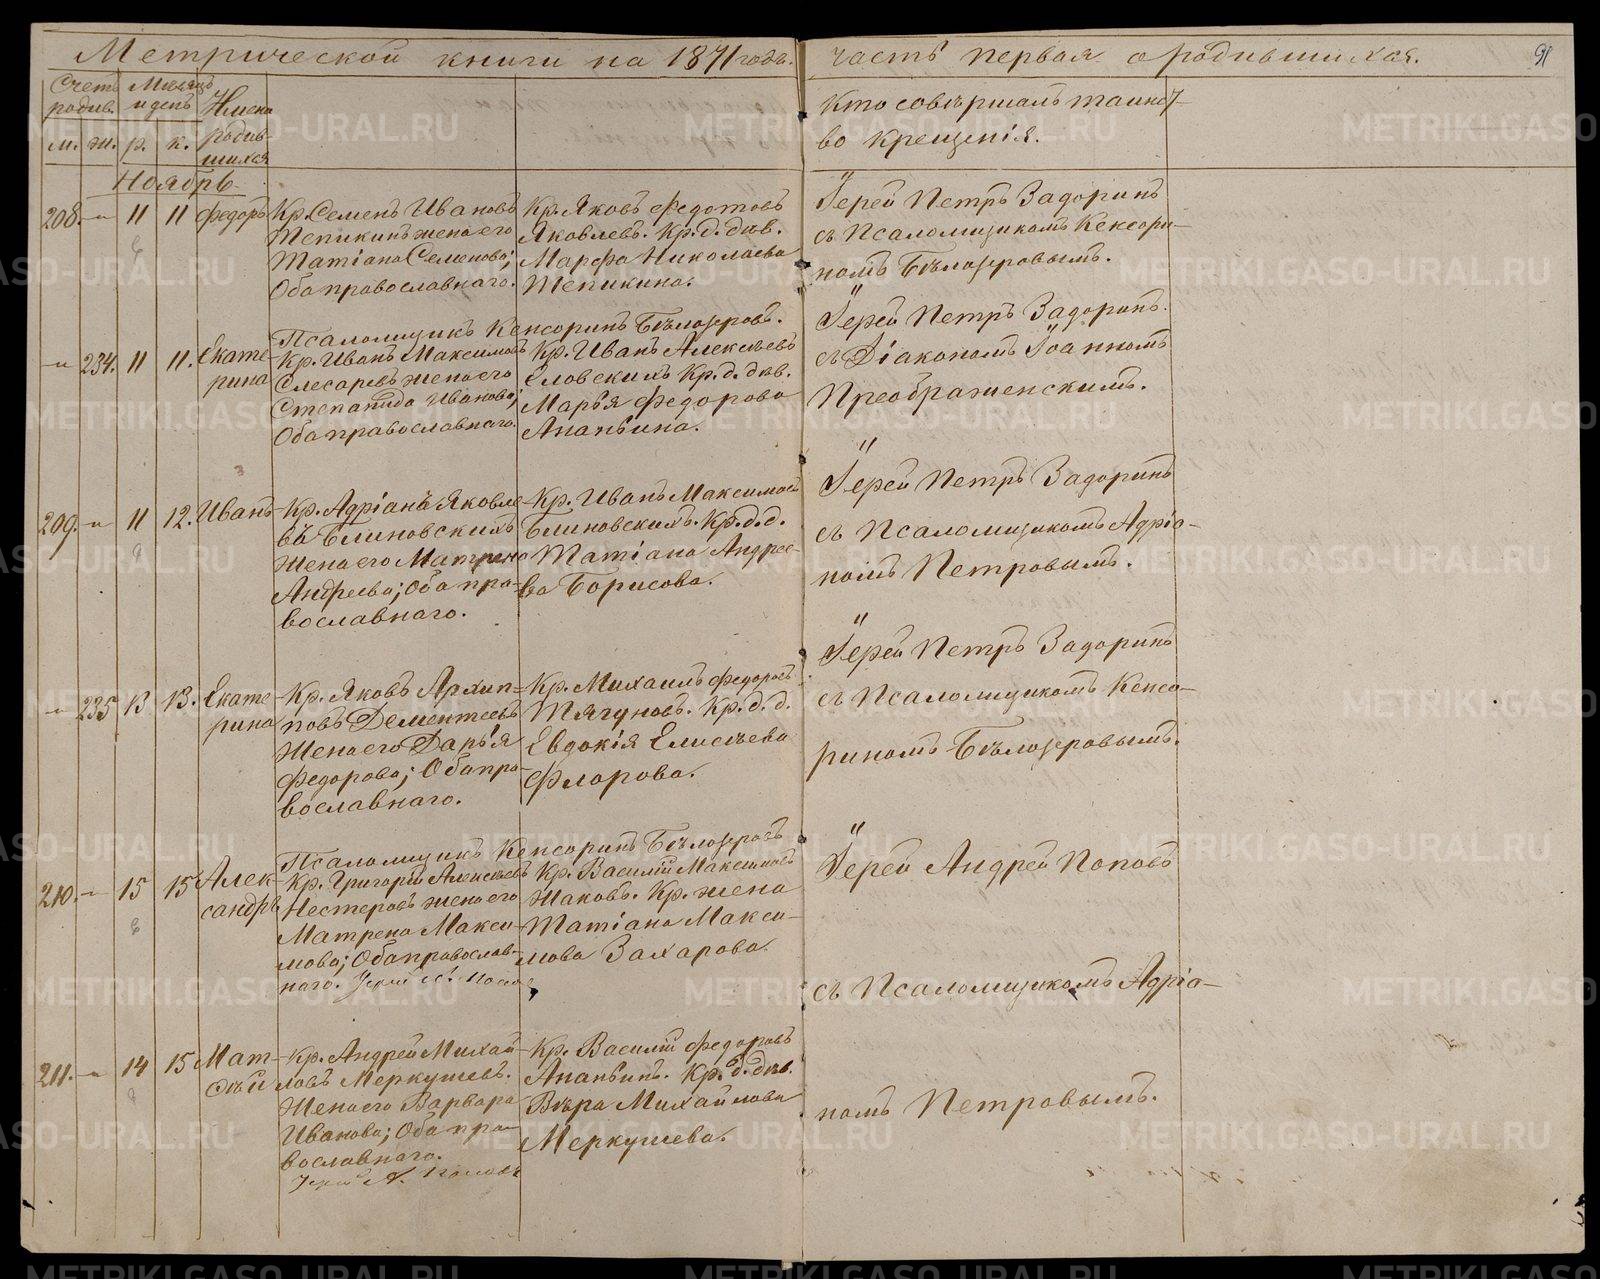 Метрической книги на 1871 года. часть первая о родившихся. 91
Счетъ родив. Мѣсяцъ и день Имена родив-шихся
м. ж. р. к.
Кто совершалъ таинст-
во крещенія.
Ноябрь
208. -"- 11 11 Федоръ
Кр. Семенъ Ивановъ
Тепикинъ жена его
Татіана Семенова;
Оба православнаго.
Кр. Яковъ Федотовъ
Яковлевъ. Кр. д. дѣв.
Марфа Николаева
Тепикина.
Іерей Петръ Задоринъ
съ Псаломщикомъ Кенсори-
номъ Бѣлозеровымъ.
Псаломщикъ Кенсоринъ Бѣлозеровъ.
-"- 234. 11 11. Екате
рина
Кр. Иванъ Максимовъ
Слесаревъ жена его
Степанида Иванова;
Оба православнаго.
Кр. Иванъ Алексѣевъ
Еловскихъ Кр. д. дѣв.
Марья Федорова
Ананьина.
Іерей Петръ Задоринъ.
съ Діакономъ Іоанномъ
Преображенскимъ.
209. -"- 11 12. Иванъ
Кр. Адріанъ Яковле-
въ Блиновскихъ
жена его Матрена
Андреева; Оба пра-
вославнаго.
Кр. Иванъ Максимовъ
Блиновскихъ. Кр. д. д.
Татіана Андрее-
ва Борисова.
Іерей Петръ Задоринъ
съ Псаломщикомъ Адріа-
номъ Петровымъ.
-"- 235 13 13. Екате
рина
Кр. Яковъ Архип-
повъ Дементьевъ
Жена его Дарья
Федорова; Оба пра-
вославнаго.
Кр. Михаилъ Федоровъ
Тягуновъ. Кр. д. д.
Евдокія Елисѣева
Флорова.
Іерей Петръ Задоринъ
съ Псаломщикомъ Кенсо-
риномъ Бѣлозеровымъ.
Псаломщикъ Кенсоринъ Бѣлозеровъ
210. -"- 15 15 Алек-
сандръ
Кр. Григорій Алексѣевъ
Нестеровъ жена его
Матрена Макси-
мова; Оба православ-
наго. Іерей А. Попов
Кр. Василій Максимовъ
Жаковъ. Кр. жена
Татіана Макси-
мова Захарова.
Іерей Андрей Поповъ
съ Псаломщикомъ Адріа-
номъ Петровымъ.
211. -"- 14 15 Мат-
ѳѣй
Кр. Андрей Михай-
ловъ Меркушевъ.
Жена его Варвара
Иванова; Оба пра-
вославнаго.
Іерей А. Поповъ
Кр. Василій Федоровъ
Ананьинъ. Кр. д. дѣв.
Вѣра Михайлова
Меркушева.
METRIKI.GASO-URAL.RU